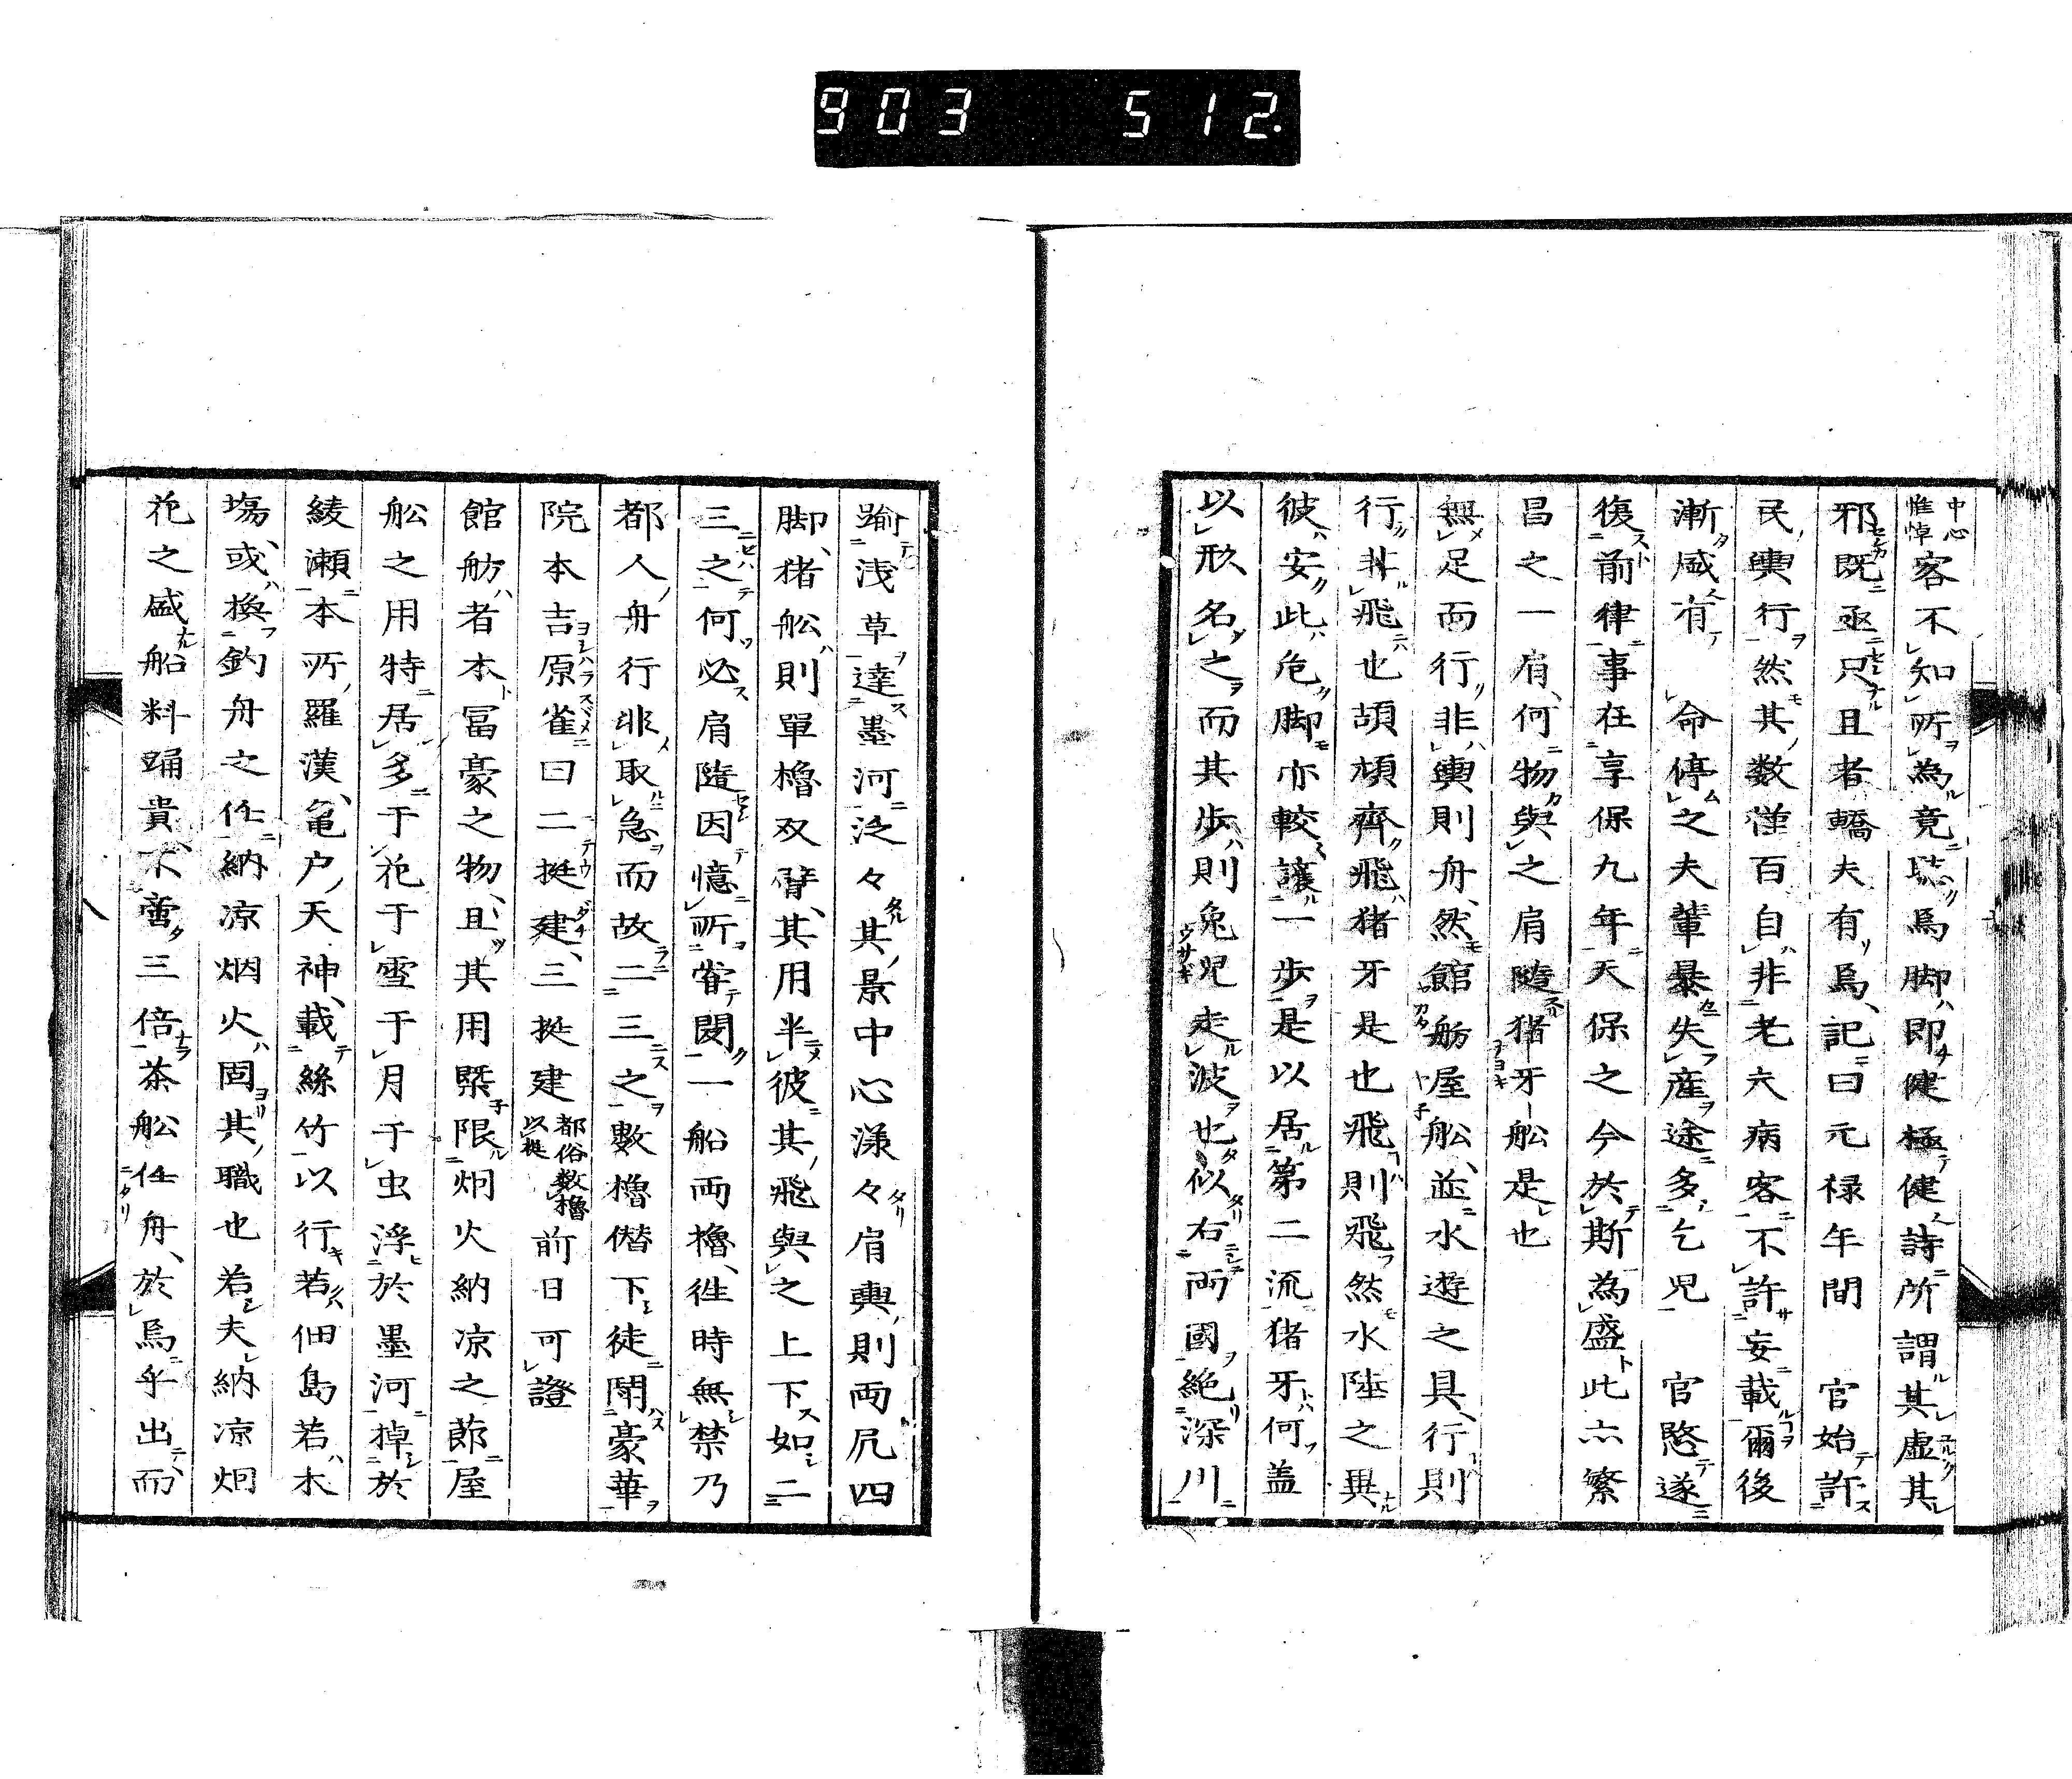 903 512.
中心惟悼客不知所為竟聴焉脚即健極健詩所謂其虚其
邪既亟只且者轎夫有焉記曰元禄年間 官始許
民輿行然其数僅百自非老夫病客不許妄載爾後
漸盛有 命停之夫輩暴失産途多乞児 官愍遂
復前律事在享保九年天保之今於斯為盛此亦繁
昌之一肩何物與之肩随猪牙舩是也
無足而行非輿則舟然館舫屋舩並水遊之具行則
行非飛也頡頏齊飛猪牙是也飛則飛然水陸之異
彼安此危脚亦較譲一歩是以居第二流猪牙何盖
以形名之而其歩則兔児走波也似右両國絶深川
踰浅草達墨河泛々其景中心漾々肩輿則両尻四
脚猪舩則單櫓双臂其用半彼其飛與之上下如二
三之何必肩随因憶所甞閲一船両櫓往時無禁乃
都人舟行非取急而故二三之數櫓僣下徒闘豪華
院本吉原雀曰二挺建三挺建都俗数櫓以挺前日可證
館舫者本冨豪之物且其用槩限炯火納凉之節屋
舩之用特居多于花于雪于月于虫浮於墨河掉於
綾瀬本所羅漢亀戸天神載絲竹以行若佃島若木
塲或換釣舟之任納凉烟火固其職也若夫納凉炯
花之盛船料踊貴不啻三倍茶舩任舟於焉乎出而
八